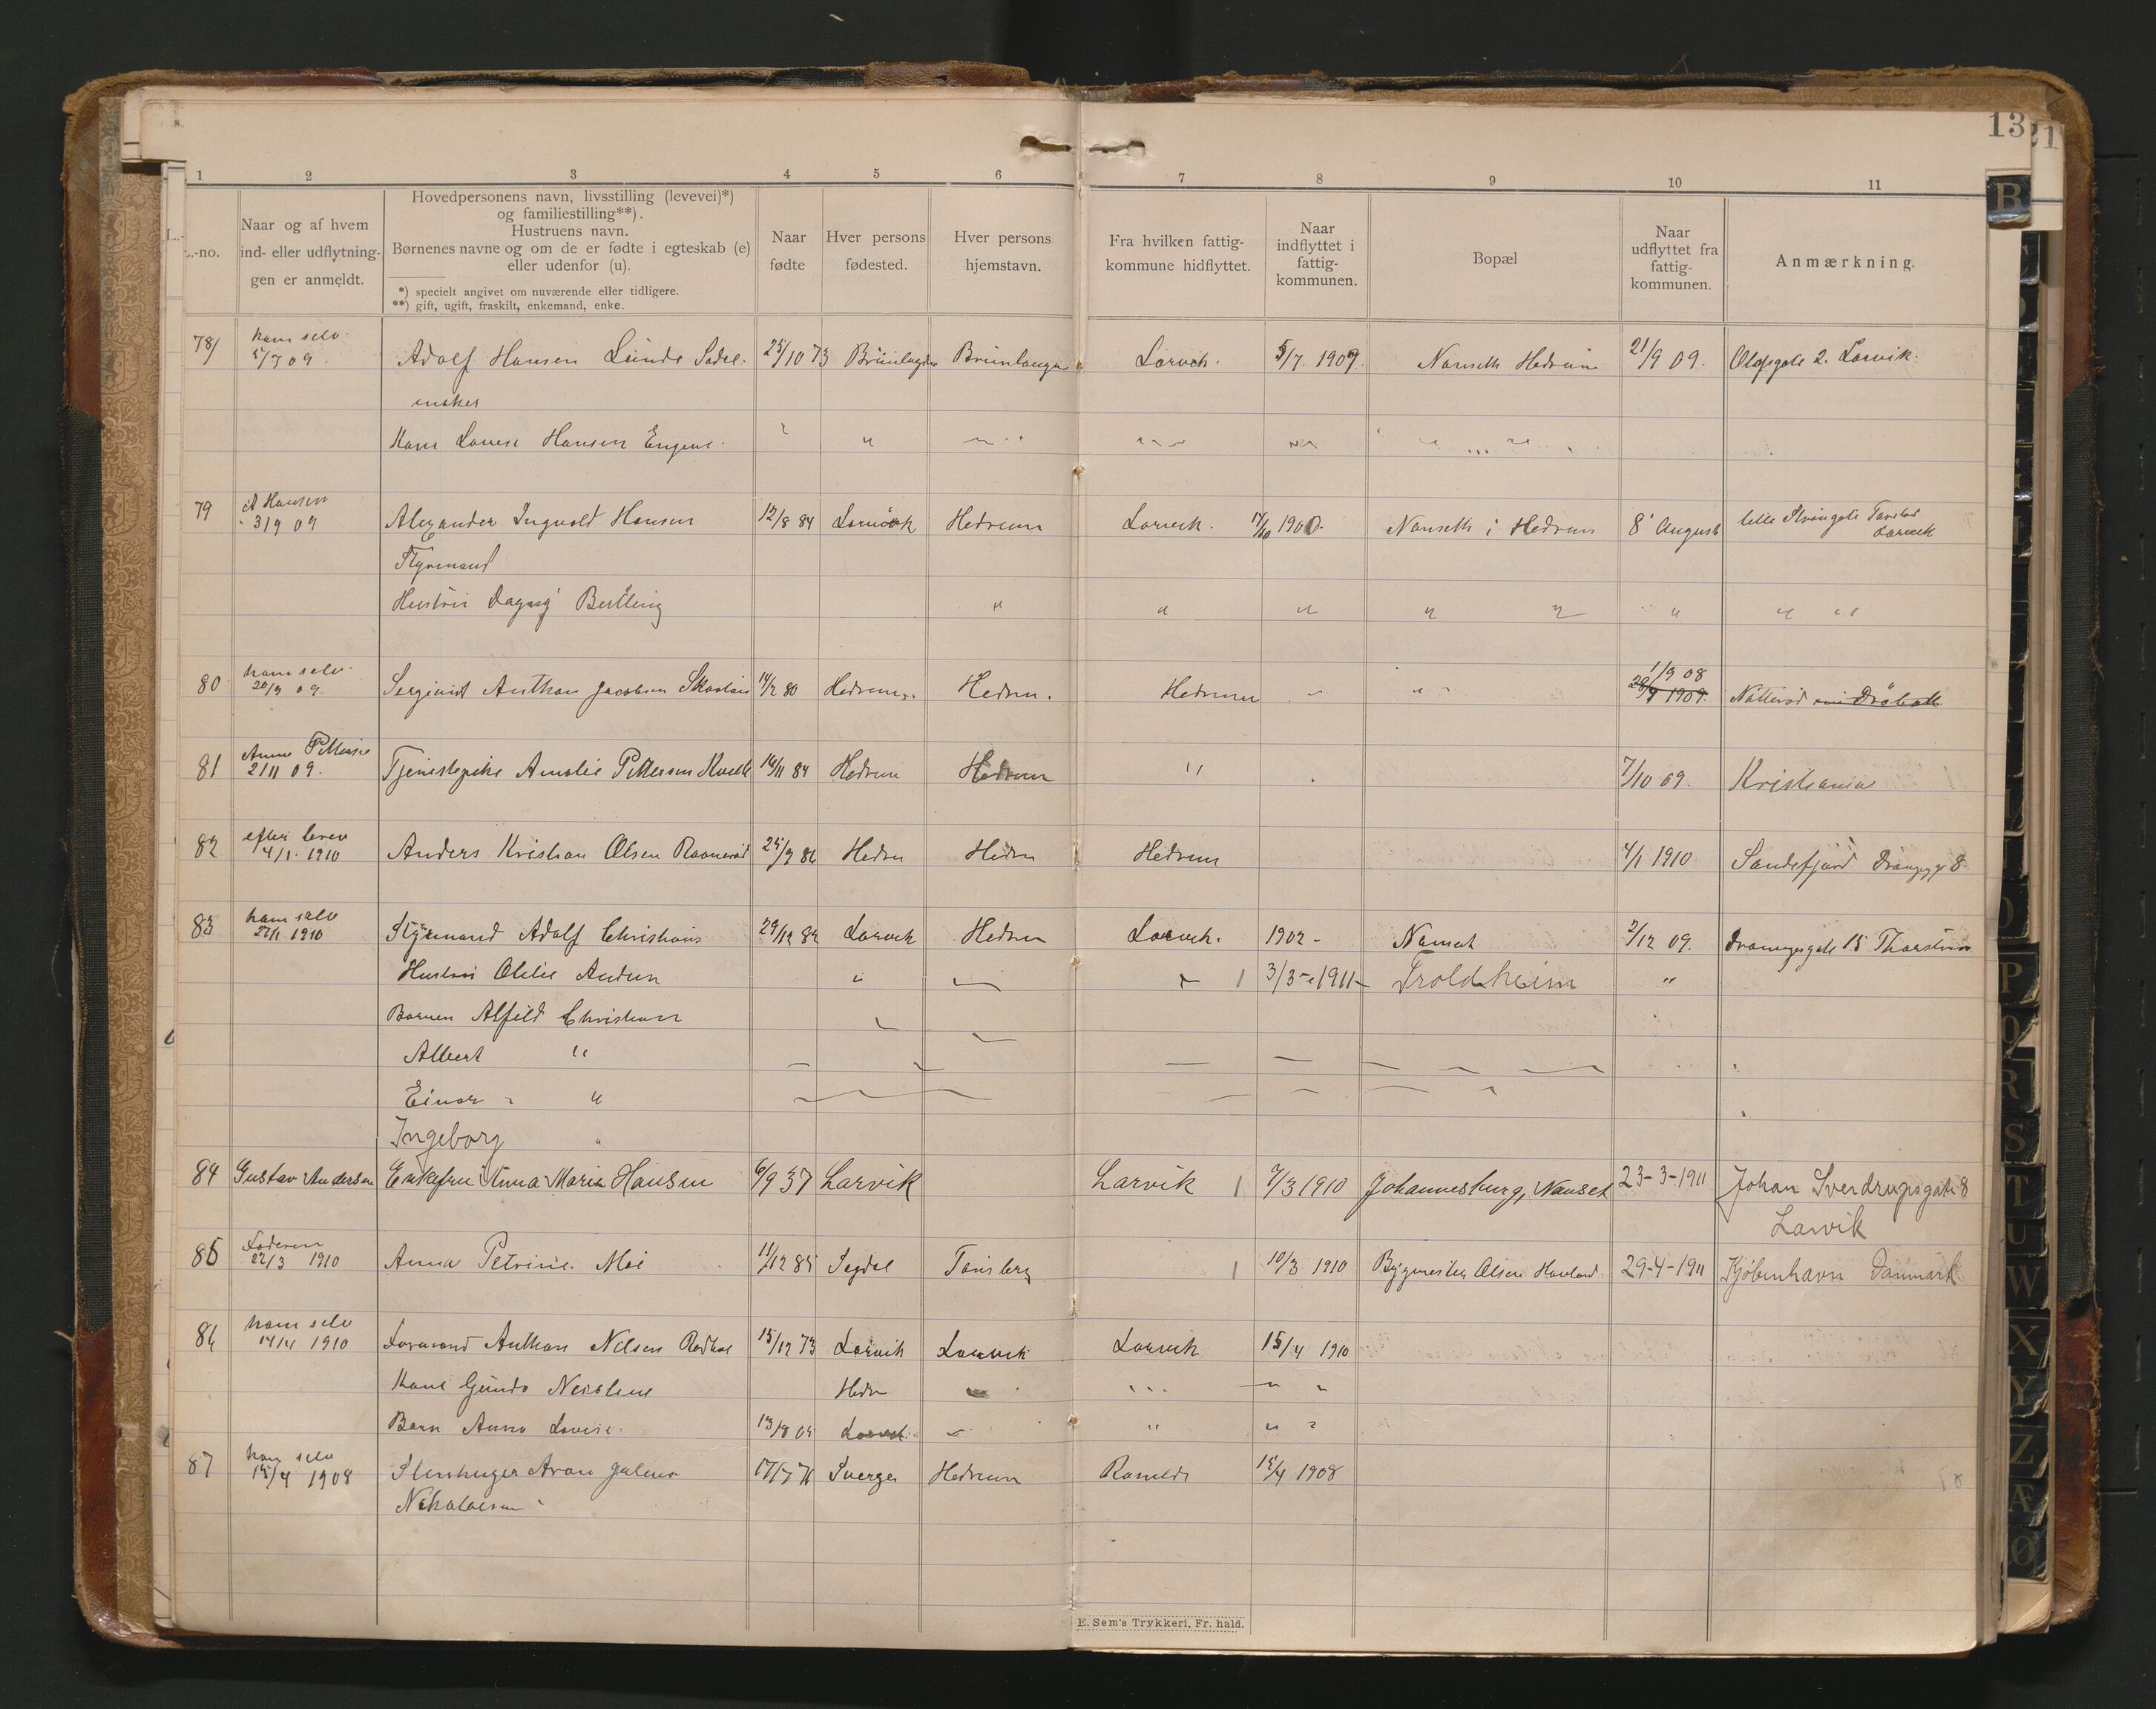 13
21
1 2 3 4 5 6 7 8 9 10 11
L.-no.
Naar og af hvem
ind- eller udflytnin-
gen er anmeldt.
Hovedpersonens navn, livsstilling (levevei)*)
og familiestilling**).
Hustruens navn.
Børnenes navne og om de er fødte i egteskab (e)
eller udenfor (u).
*) specielt angivet om nuværende eller tidligere.
**) gift, ugift, fraskilt, enkemand, enke.
Naar
fødte
Hver persons
fødested.
Hver persons
hjemstavn.
Fra hvilken fattig-
kommune hidflyttet.
Naar
indflyttet i
fattig-
kommunen.
Bopæl
Naar
udflyttet fra
fattig-
kommunen.
Anmærkning.
78 ham selv
5/7 09 Adolf Hansen Lunde Sadel- 25/10 73 Brunlagnes Brunlangn Larvck. 5/7. 1909. Nanseth Hedrum 21/9 09. Olafsgate 2. Larvik.
maker
Kone Lovise Hansen Engene. " "
79 A Hansen
3/9 09 Alexander Ingvald Hansen 12/8 84 Larvick Hedrum Larvck. 1900. Nanseth i Hedrum 8 August lille Strangate Larvik
Styrmand
Hustru Dagny Bertling " " " " " " "
80 ham selv
20/9 09. Sergiant Anthon Jacobsen 14/2 80 Hedrum. Hedrm. Hedrum 1/9 08
20/9 1909. Nøtterø
81 Anna Pettersen
2/11 09. Tjenestepike Amalie Pettersen Kvelle 16/11 84 Hedrum Hedrum " 7/10 09. Kristiania
82 efter brev
4/1. 1910 Anders Kristian Olsen 25/9 86 Hedrm Hedrm Hedrum 4/1 1910 Sandefjord 8.
83 ham selv
27/1 1910 Styrmand Adolf Christians 29/12 82 Larvck Hedrm Larvck. 1902 - Nanset 2/12 09. Dronningsgate 15
Hustru " 1 3/3-1911- Troldheim "
Barnen Alfild Christian
Albert "
Einar "
Ingeborg "
84 Gustav Andersen Enkefru Anna Marie Hansen 6/9 37 Larvik Larvik 1 7/3 1910 Johannesburg, Nanset 23-3-1911 Johan Sverdrupsgate 8
Larvik
85 22/3 1910 Anna Petrine Moe 11/12 85 Sigdal Tønsberg 1 10/3 1910 Bygmester Olsen 29-4-1911 Kjøbenhavn Danmark
86 ham selv
14/4 1910 Anthon Nelsen 15/12 73 Larvik Larvik Larvck 15/4 1910
Kone Hedr
Barn Anna Lovise. Larvck " "
87 ham selv
15/4 1908 Stenhuger 17/7 76 Sverge Hedrum 15/4 1908
E. Sem's Trykkeri, Fr. hald.
B
O
P
Q
R
S
T
U
W
X
Y
Z
Æ
Ø